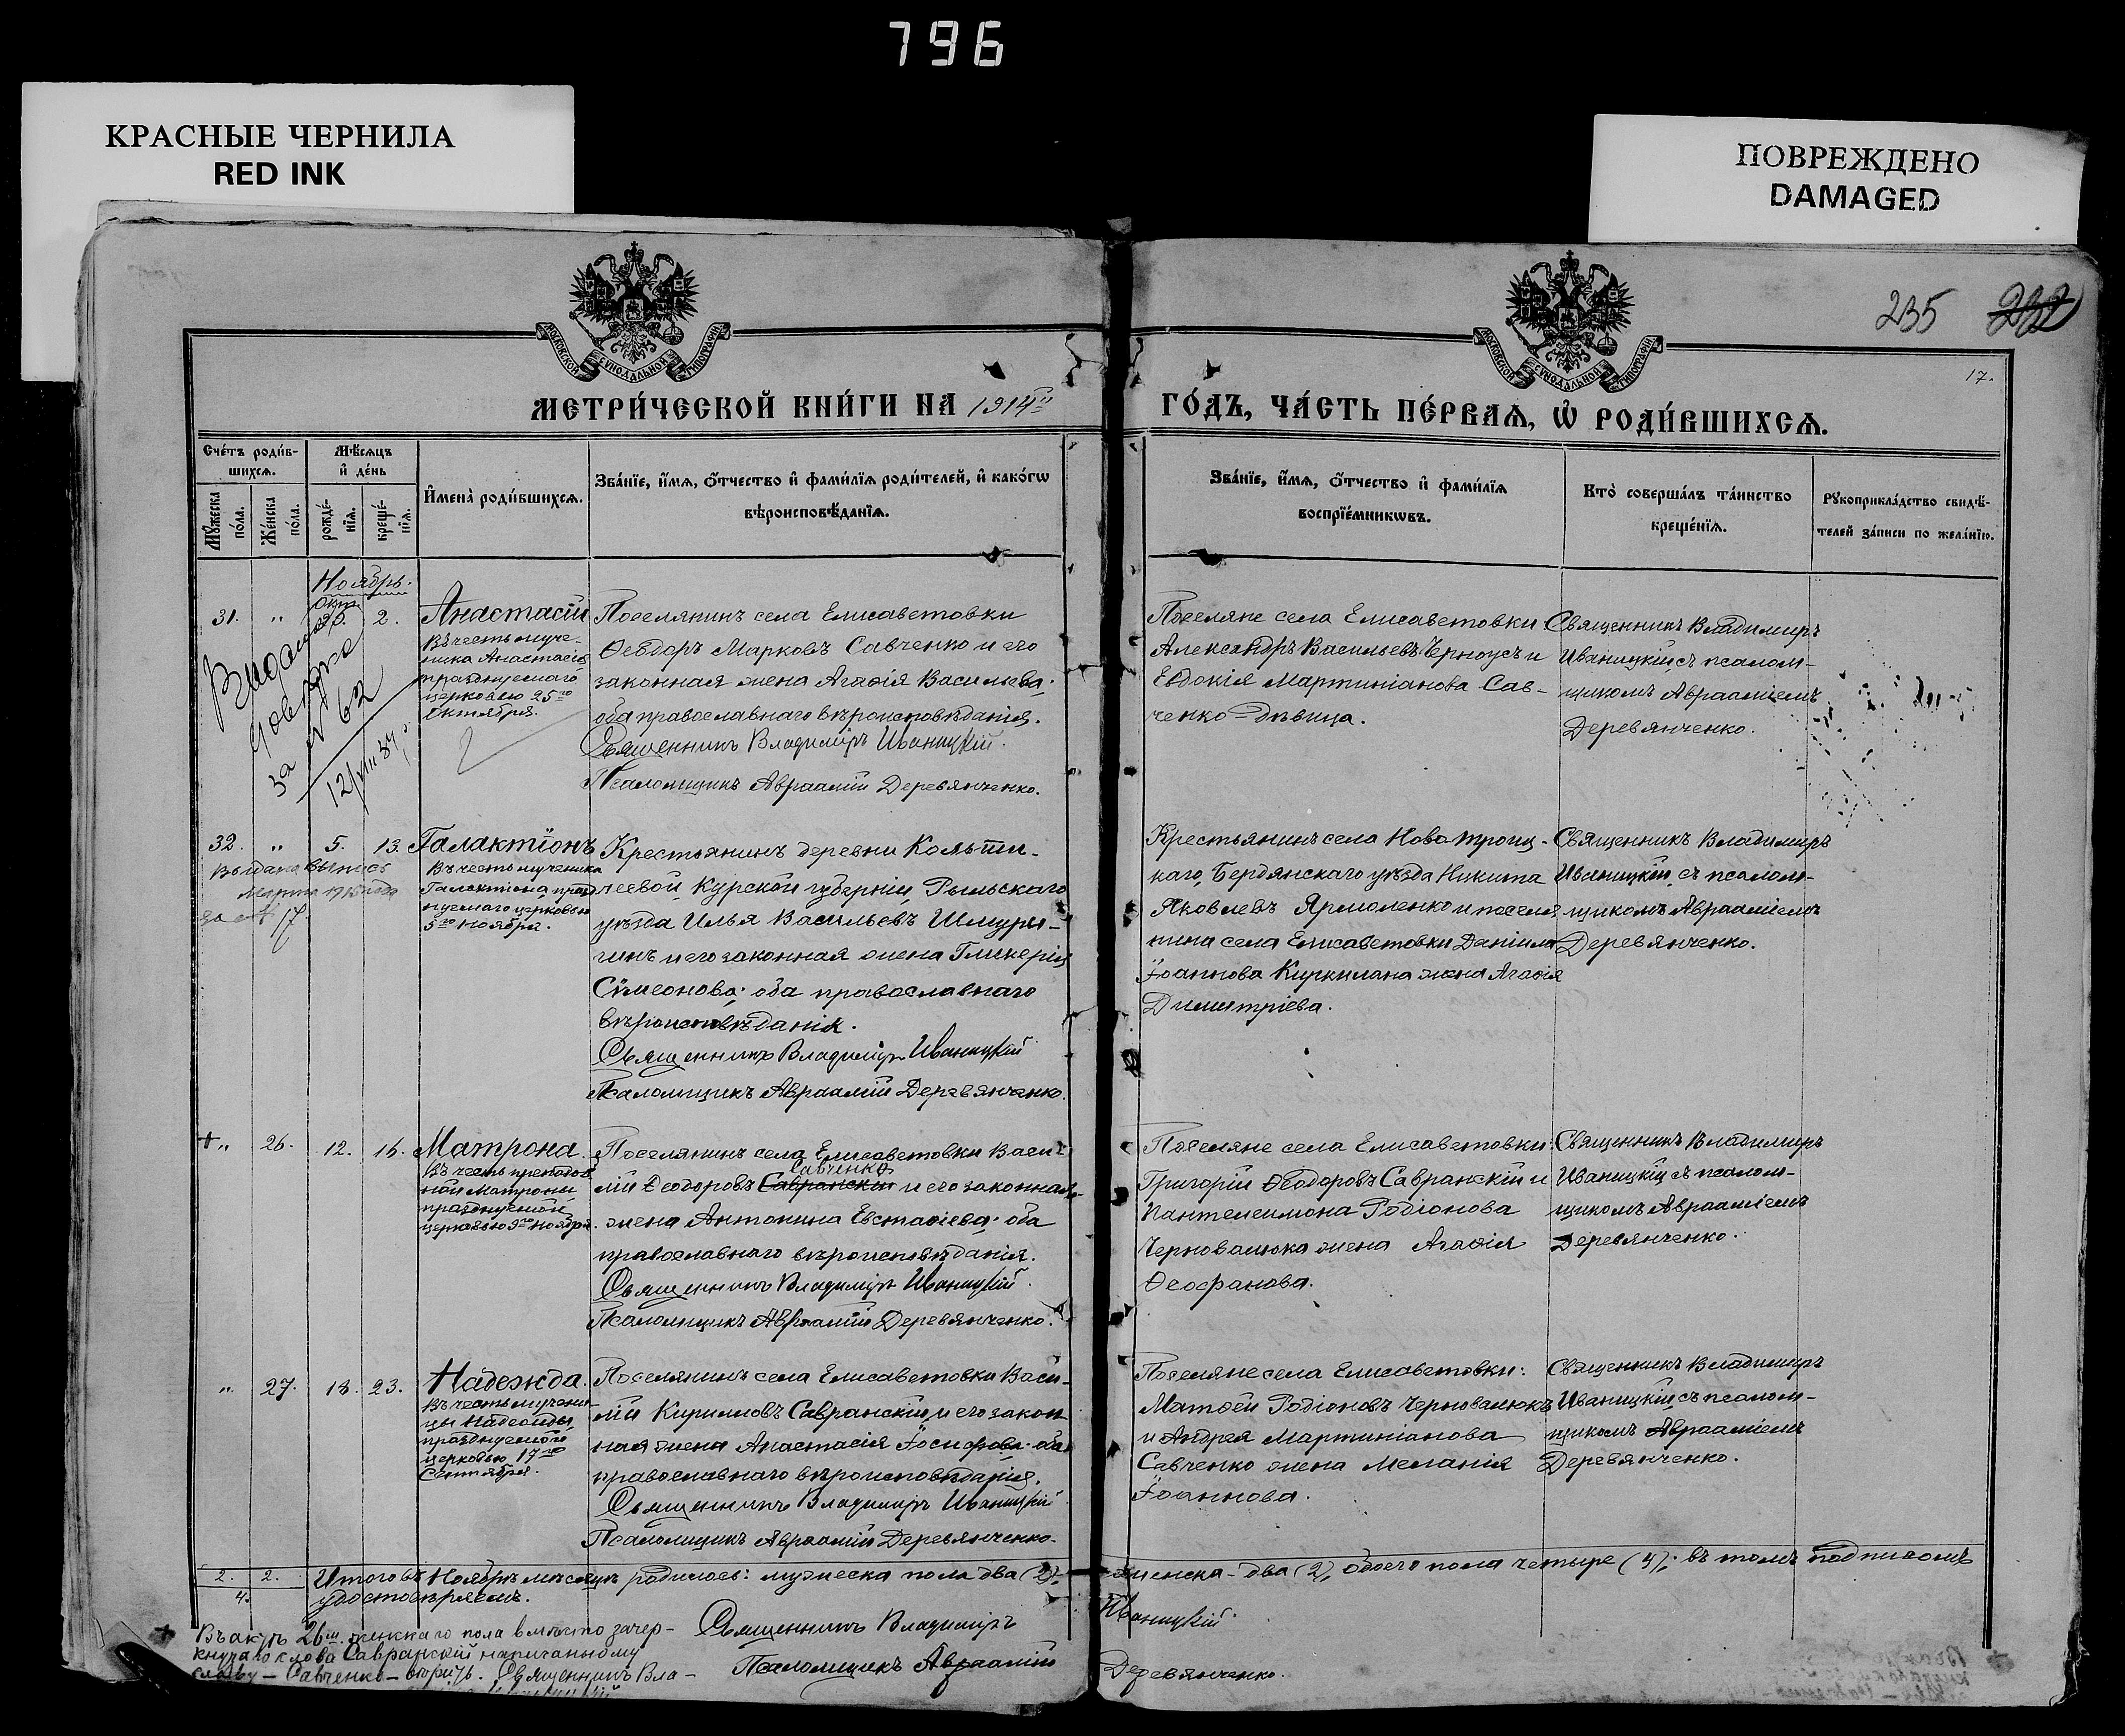 796
КРАСНЫЕ ЧЕРНИЛА
RED INK
ПОВРЕЖДЕНО
DAMAGED
235 232
17.
МОСКОВСКОЙ СѴНОДАЛЬНОЙ ТИПОГРАФІИ
МОСКОВСКОЙ СѴНОДАЛЬНОЙ ТИПОГРАФІИ
МЕТРИ́ЧЕСКОЙ КНИ́ГИ НА 1914й ГО́ДЪ, ЧА́СТЬ ПЕ́РВАѦ, Ѡ҆ РОДИ́ВШИХСѦ.
Сче́тъ роди́в-
шихсѧ.
Мꙋ́жеска
по́ла.
Же́нска
по́ла.
Мѣ́сѧцъ
и҆ де́нь
рожде́-
нїѧ.
креще́-
нїѧ.
И҆мена̀ роди́вшихсѧ.
Зва́нїе, и҆́мѧ, ѻ҆́тчество и҆ фами́лїѧ роди́телей, и҆ како́гѡ
вѣроисповѣ́данїѧ.
Зва́нїе, и҆́мѧ, ѻ҆́тчество и҆ фами́лїѧ
воспрїе́мникѡвъ.
Кто̀ соверша́лъ та́инство
креще́нїѧ.
Рꙋкоприкла́дство свидѣ́-
телей за́писи по жела́нїю.
Ноябрь.
31. " Окт. 30. 2.
Анастасій
Въ честь муче-
ника Анастасія
празднуемаго
церковью 25го
Октября.
за № 62
12/VIII 37
Поселянинъ села Елисаветовки
Ѳеодоръ Марковъ Савченко и его
законная жена Агафія Васильева:
оба православнаго вѣроисповѣданія.
Священникъ Владиміръ Иваницкій.
Псаломщикъ Авраамій Деревянченко.
Поселяне села Елисаветовки
Александръ Васильевъ Черноусъ и
Евдокія Мартиніанова Сав-
ченко-дѣвица.
Священникъ Владимиръ
Иваницкій съ псалом-
щикомъ Аврааміемъ
Деревянченко.
32. " 5. 13.
Выдана выпись
Марта 1915 года
за № 17.
Галактіонъ
Въ честь мученика
Галактіона, празд
нуемаго церковью
5го Ноября.
Крестьянинъ деревни Кольти-
чеевой, Курской губерніи, Рыльскаго
уѣзда Илья Васильевъ Шмуры-
гинъ и его законная жена Гликерія
Сѵмеонова: оба православнаго
вѣроисповѣданія.
Священникъ Владиміръ Иваницкій
Псаломщикъ Авраамій Деревянченко.
Крестьянинъ села Ново-Троиц-
каго, Бердянскаго уѣзда Никита
Яковлевъ Ярмоленко и поселя
нина села Елисаветовки Даніила
Іоаннова Киркилана жена Агафія
Димитріева.
Священникъ Владимиръ
Иваницкій съ псалом-
щикомъ Аврааміемъ
Деревянченко.
+ " 26. 12. 16.
Матрона.
Въ честь преподоб
ной Матроны
празднуемой
церковью 9го Ноября.
Поселянинъ села Елисаветовки Васи-
Савченко
лій Ѳеодоровъ Савранскій и его законная
жена Антонина Евстафіева: оба
православнаго вѣроисповѣданія.
Священникъ Владиміръ Иваницкій.
Псаломщикъ Авраамій Деревянченко.
Поселяне села Елисаветовки:
Григорій Ѳеодоровъ Савранскій и
Пантелеимона Родіонова
Черновалюка жена Агафія
Ѳеофанова.
Священникъ Владимиръ
Иваницкій съ псалом-
щикомъ Аврааміемъ
Деревянченко.
" 27. 18. 23.
Надежда.
Въ честь мучени-
цы Надежды,
празднуемой
церковью 17го
Сентября.
Поселянинъ села Елисаветовки Васи-
лій Кирилловъ Савранскій и его закон
ная жена Анастасія Іосифова: оба
православнаго вѣроисповѣданія.
Священникъ Владиміръ Иваницкій
Псаломщикъ Авраамій Деревянченко.
Поселяне села Елисаветовки:
Матѳей Родіоновъ Черновалюкъ
и Андрея Мартиніанова
Савченко жена Меланія
Іоаннова.
Священникъ Владимиръ
Иваницкій съ псалом-
щикомъ Аврааміемъ
Деревянченко.
2. 2. Итого въ Ноябрѣ мѣсяцѣ родилось: мужеска пола два (2), женска-два (2), обоего пола четыре (4); въ томъ подписомъ
4. удостовѣряемъ.
Священникъ Владиміръ Иваницкій.
Псаломщикъ Авраамій Деревянченко.
Въ актѣ 26мъ женскаго пола вмѣсто зачер-
кнутаго слова Савранскій написанному
слову - Савченко - вѣрить. Священникъ Вла-